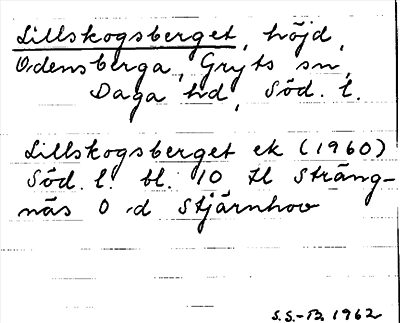 Lillskogsberget, höjd,
Odensberga, Gryts sn,
Daga hd, Söd. l.
Lillskogsberget ek (1960)
Söd. l. bl. 10 tl Sträng-
näs O d Stjärnhov
S.S.-B. 1962